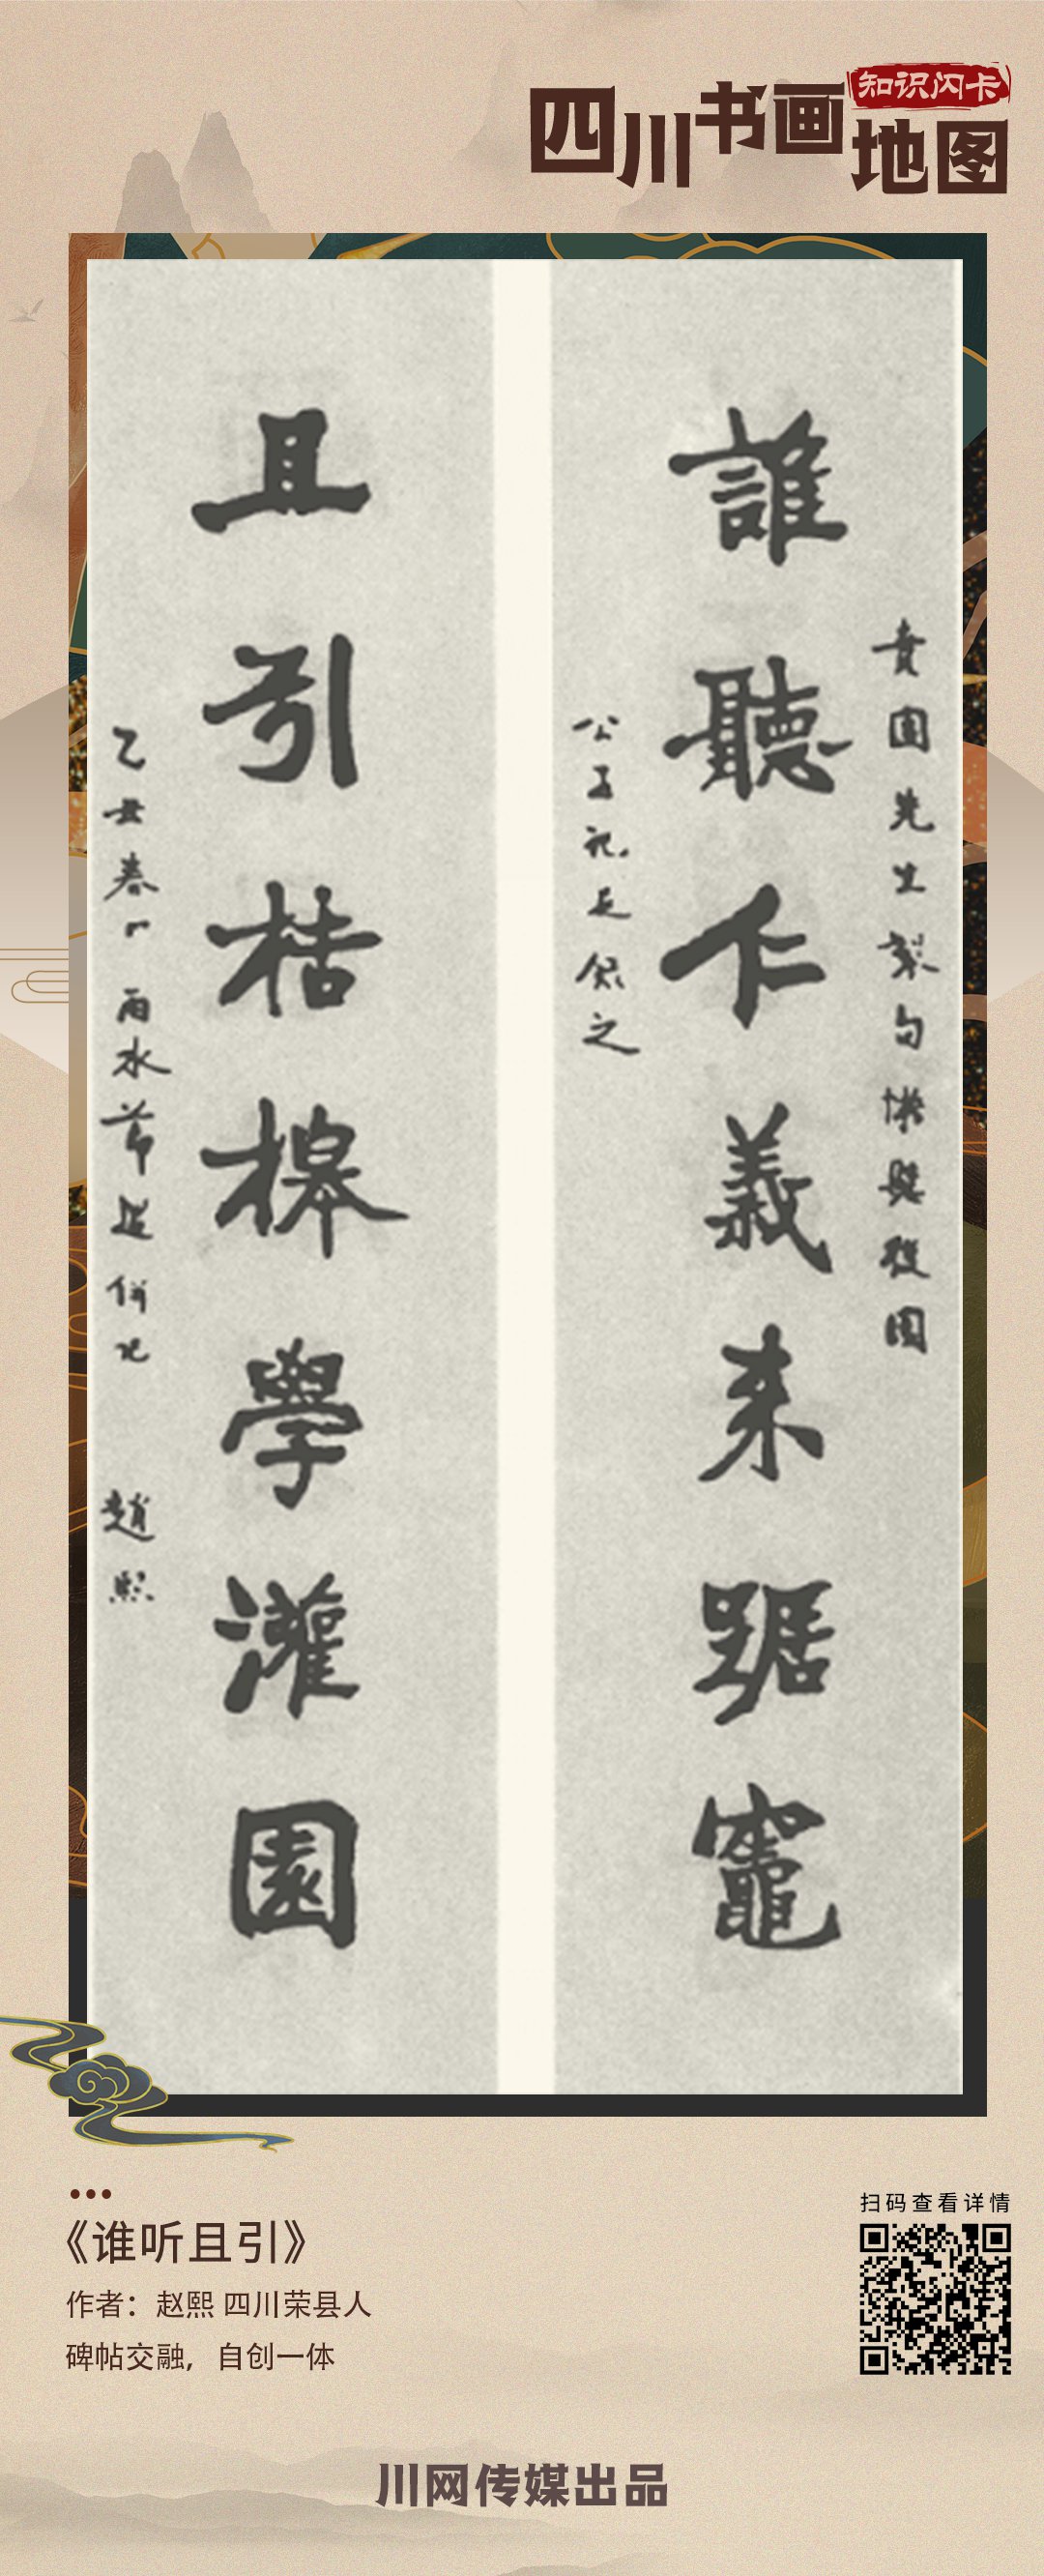 四川书画地图
知识闪卡
誰聽仁義来踞竈
賁園先生
句
園
公子
之
且引桔槔學灌園
乙丑春
雨水節
趙熙
《谁听且引》
作者：赵熙 四川荣县人
碑帖交融，自创一体
扫码查看详情
川网传媒出品